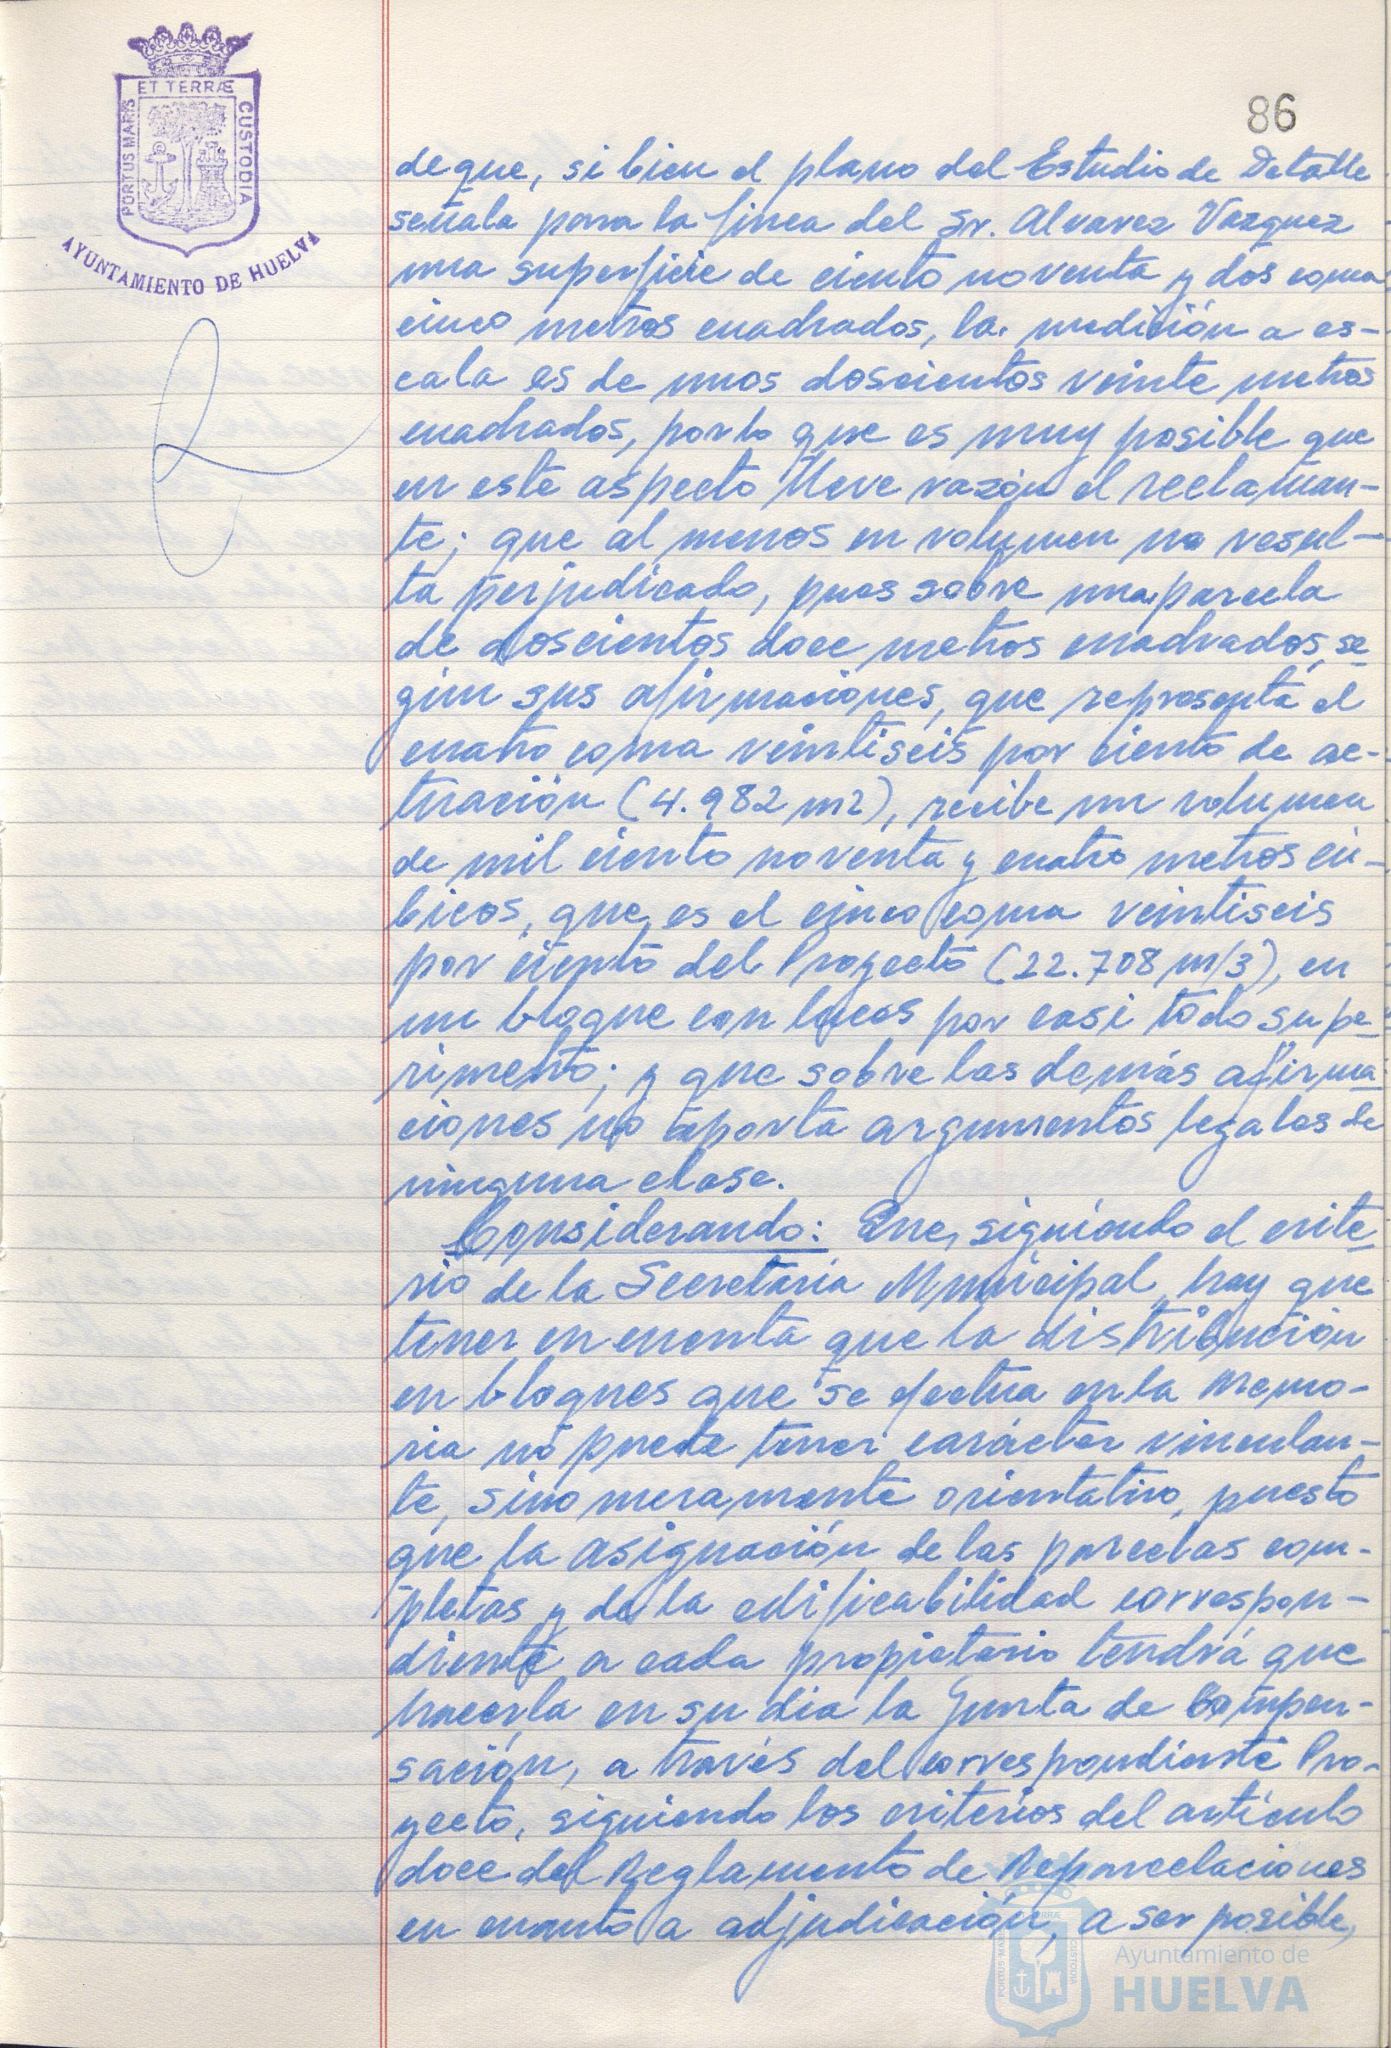 ET TERRÆ
PORTUS MARIS
CUSTODIA
AYUNTAMIENTO DE HUELVA
86
de que, si bien el plano del Estudio de Detalle
señala para la finca del Sr. Alvarez Vazquez
una superficie de ciento noventa y dos coma
cinco metros cuadrados, la medición a es-
cala es de unos doscientos veinte metros
cuadrados, por lo que es muy posible que
en este aspecto lleve razón el reclaman-
te; que al menos en volumen no resul-
ta perjudicado, pues sobre una parcela
de doscientos doce metros cuadrados, se-
gún sus afirmaciones, que representa el
cuatro coma veintiseis por ciento de ac-
tuación (4.982 m2), recibe un volumen
de mil ciento noventa y cuatro metros cú-
bicos, que es el cinco coma veintiseis
por ciento del Proyecto (22.708 m/3), en
un bloque con luces por casi todo su pe-
rimetro; y que sobre las demás afirma-
ciones no aporta argumentos legales de
ninguna clase.
Considerando: Que, siguiendo el crite-
rio de la Secretaría Municipal, hay que
tener en cuenta que la distribución
en bloques que se efectua en la memo-
ria no puede tener carácter vinculan-
te, sino meramente orientativo, puesto
que la asignación de las parcelas com-
pletas y de la edificabilidad correspon-
diente a cada propietario tendrá que
hacerla en su dia la Junta de Compen-
sación, a través del correspondiente Pro-
yecto, siguiendo los criterios del artículo
doce del Reglamento de Reparcelaciones
en cuanto a adjudicación, a ser posible,
Ayuntamiento de
HUELVA